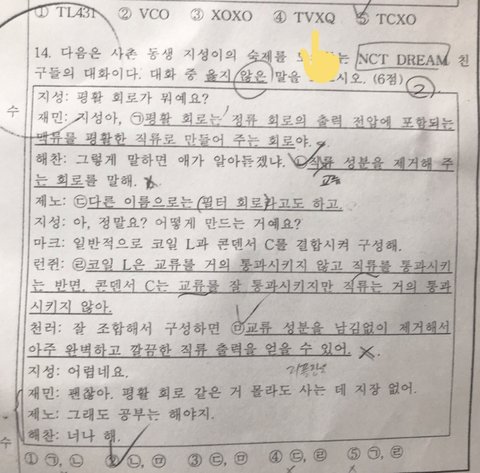 ① TL431 ② VCO ③ XOXO ④ TVXQ ⑤ TCXO
14. 다음은 사촌 동생 지성이의 숙제를 는 NCT DREAM 친
구들의 대화이다. 대화 중 옳지 않은 말을 시오. (6점)
②
수
지성: 평활 회로가 뭐예요?
재민: 지성아, ㉠평활 회로는 정류 회로의 출력 전압에 포함되는
맥류를 평활한 직류로 만들어 주는 회로야.
해찬: 그렇게 말하면 얘가 알아듣겠냐. ㉡직류 성분을 제거해 주
교류
는 회로를 말해.
제노: ㉢다른 이름으로는 (필터 회로)라고도 하고.
지성: 아, 정말요? 어떻게 만드는 거예요?
마크: 일반적으로 코일 L과 콘덴서 C를 결합시켜 구성해.
런쥔: ㉣코일 L은 교류를 거의 통과시키지 않고 직류를 통과시키
는 반면, 콘덴서 C는 교류를 잘 통과시키지만 직류는 거의 통과
시키지 않아.
천러: 잘 조합해서 구성하면 ㉤교류 성분을 남김없이 제거해서
아주 완벽하고 깔끔한 직류 출력을 얻을 수 있어.
지성: 어렵네요.
재민: 괜찮아. 평활 회로 같은 거 몰라도 사는 데 지장 없어.
제노: 그래도 공부는 해야지.
해찬: 너나 해.
수
① ㉠, ㉡ ② ㉡, ㉤ ③ ㉢, ㉤ ④ ㉢, ㉣ ⑤ ㉠, ㉣